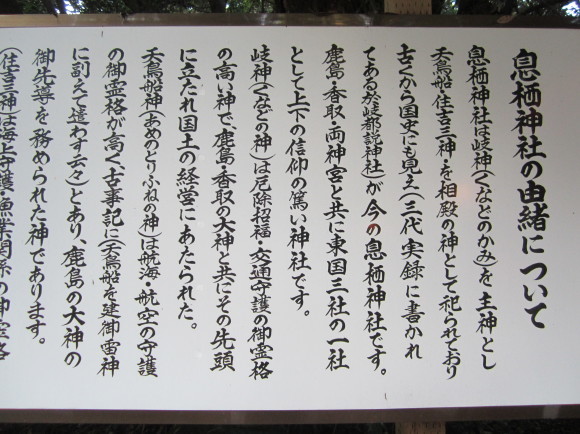 息栖神社の由緒について
息栖神社は岐神(くなどのかみ)を主神とし
天鳥船・住吉三神を相殿の神として祀られており
古くから国史にも見え(三代実録に書かれ
てあるが岐都託神社)が今の息栖神社です。
鹿島・香取・両神宮と共に東国三社の一社
として上下の信仰の篤い神社です。
岐神(くなどの神)は厄除招福・交通守護の御霊格
の高い神で、鹿島・香取の大神と共にその先頭
に立たれ国土の経営にあたられた。
天鳥船神(あめのとりふねの神)は航海・航空の守護
の御霊格が高く、古事記に(天鳥船を建御雷神
に副えて遣わす云々)とあり、鹿島の大神の
御先導を務められた神であります。
(住吉三神)は海上守護・漁業関係の御霊格